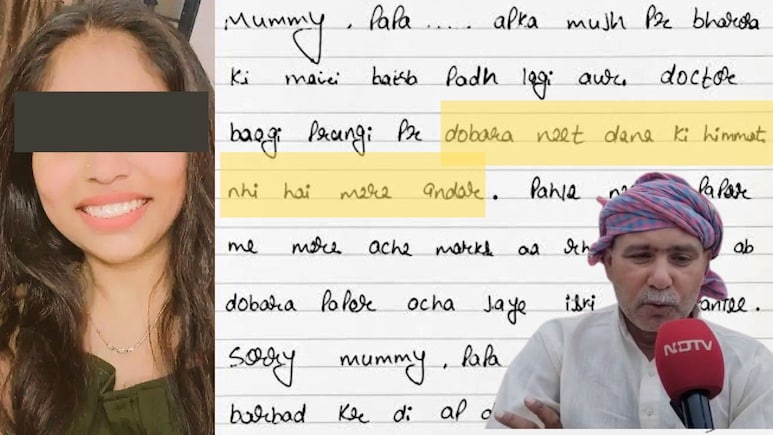 Mummy , Papa ..... apka mujh Pr bharosa
ki Padh lagi doctor
Pr dobara neet dene ki himmat
nhi hai mere andar . Pahle Papar
me mere ache marks aa ab
dobara Papar acha Jaye iski
Sorry mummy , Papa
barbad kr di ap
NDTV